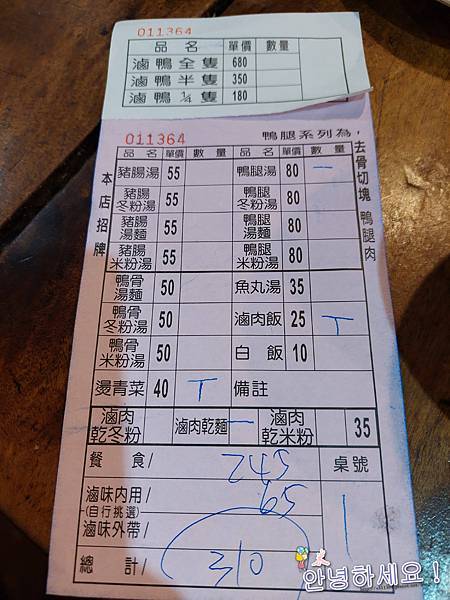 011364
品名 單價 數量
滷鴨全隻 680
滷鴨半隻 350
滷鴨¼隻 180
011364 鴨腿系列為，
去骨切塊 鴨腿肉
本店招牌
品名 單價 數量 品名 單價 數量
豬腸湯 55 鴨腿湯 80 一
豬腸冬粉湯 55 鴨腿冬粉湯 80
豬腸湯麵 55 鴨腿湯麵 80
豬腸米粉湯 55 鴨腿米粉湯 80
鴨骨湯麵 50 魚丸湯 35
鴨骨冬粉湯 50 滷肉飯 25 T
鴨骨米粉湯 50 白飯 10
燙青菜 40 T 備註
滷肉乾冬粉 滷肉乾麵 一 滷肉乾米粉 35
餐食/ 245 桌號
滷味內用/ 65 1
(自行挑選)
滷味外帶/
總計/ 310
안녕하세요!